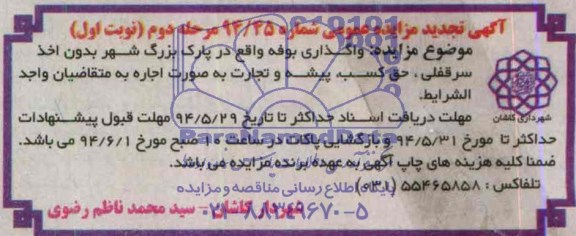 آگهی تجدید مزایده عمومی شماره ۹۴/۲۵ مرحله دوم (نوبت اول)
موضوع مزایده: واگذاری بوفه واقع در پارک بزرگ شهر بدون اخذ
سرقفلی، حق کسب، پیشه و تجارت به صورت اجاره به متقاضیان واجد
الشرایط.
شهرداری کاشان
مهلت دریافت اسناد حداکثر تا تاریخ ۹۴/۵/۲۹ مهلت قبول پیشنهادات
حداکثر تا مورخ ۹۴/۵/۳۱ و بازگشایی پاکات در ساعت ۱۰ صبح مورخ ۹۴/۶/۱ می باشد.
ضمنا کلیه هزینه های چاپ آگهی به عهده برنده مزایده می باشد.
تلفاکس: ۵۵۴۶۵۸۵۸ (۰۳۱)
پایگاه اطلاع رسانی مناقصه و مزایده
شهردار کاشان - سید محمد ناظم رضوی
۰۲۱-۸۸۳۴۹۶۷۰-۵